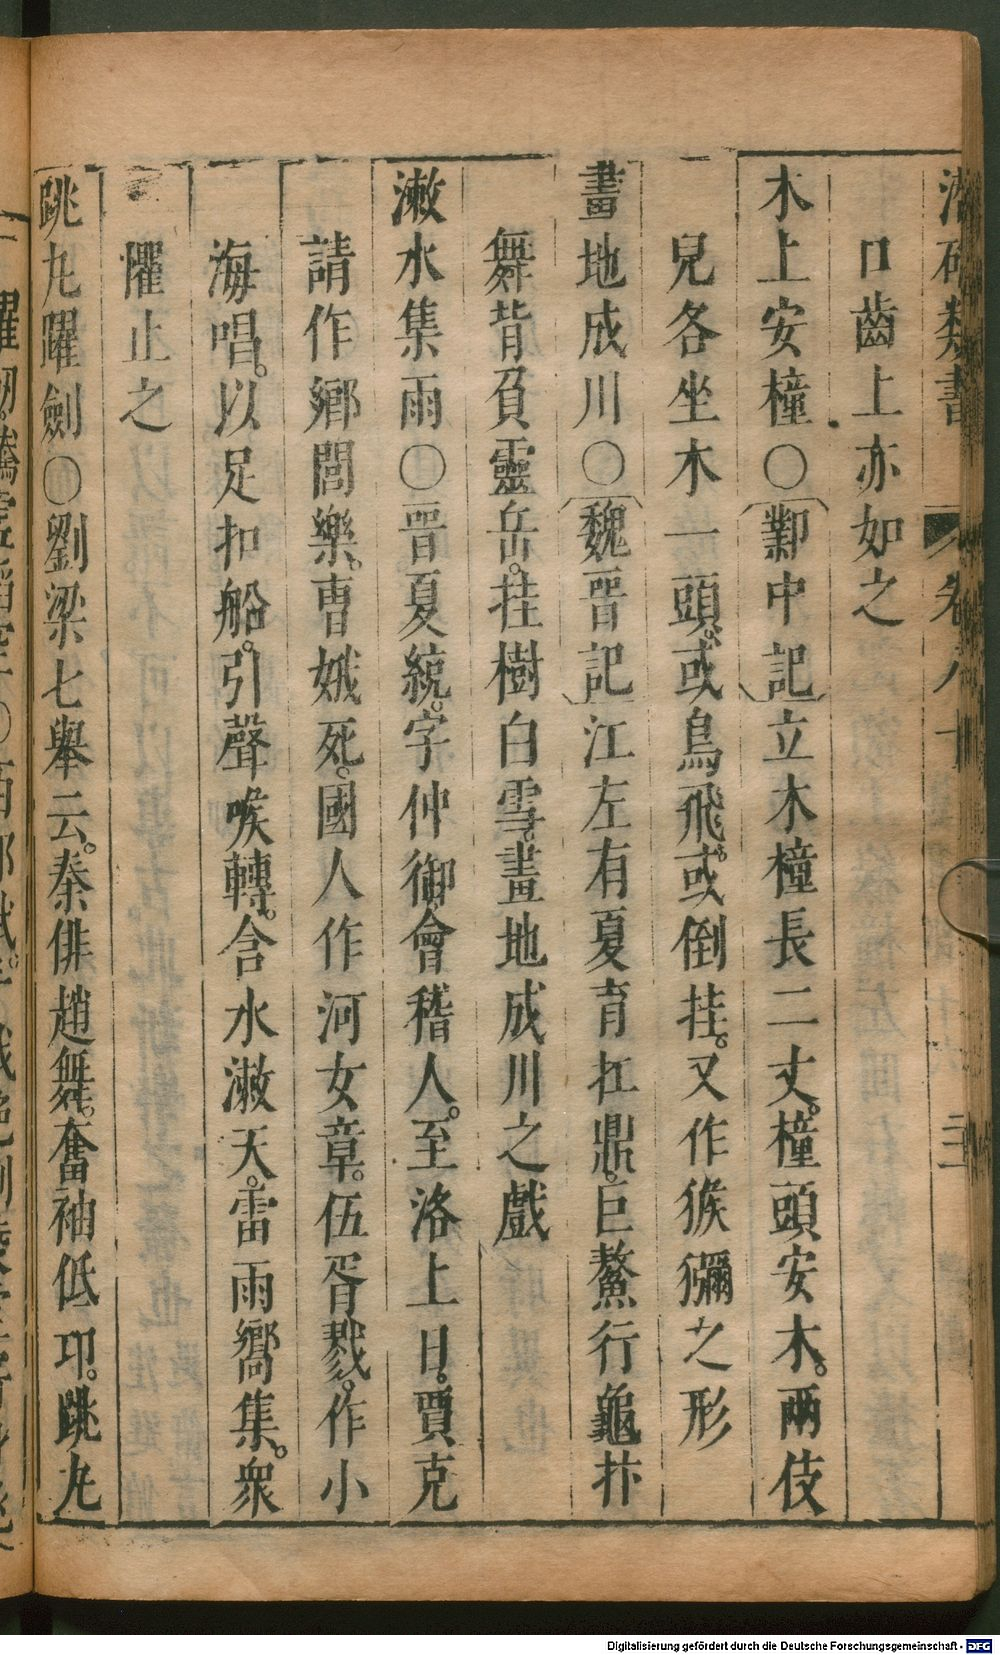 口齒上亦如之
木上安橦〇〔鄴中記〕立木橦長二丈。橦頭安木。兩伎
兒各坐木一頭。或鳥飛。或倒挂。又作猴獼之形
畫地成川〇〔魏晋記〕江左有夏育扛鼎。巨鰲行龜抃
舞背負靈岳。挂樹白雪。畫地成川之戲
漱水集雨〇晋夏統。字仲御。會稽人。至洛上日。賈克
請作鄉閭樂。曹娥死。國人作河女章。伍胥戮。作小
海唱。以足扣船。引聲喉轉。含水漱天。雷雨嚮集。衆
懼止之
跳九躍劍〇劉梁七舉云。秦俳趙舞。奮袖低卭。跳九
Digitalisierung gefördert durch die Deutsche Forschungsgemeinschaft - DFG